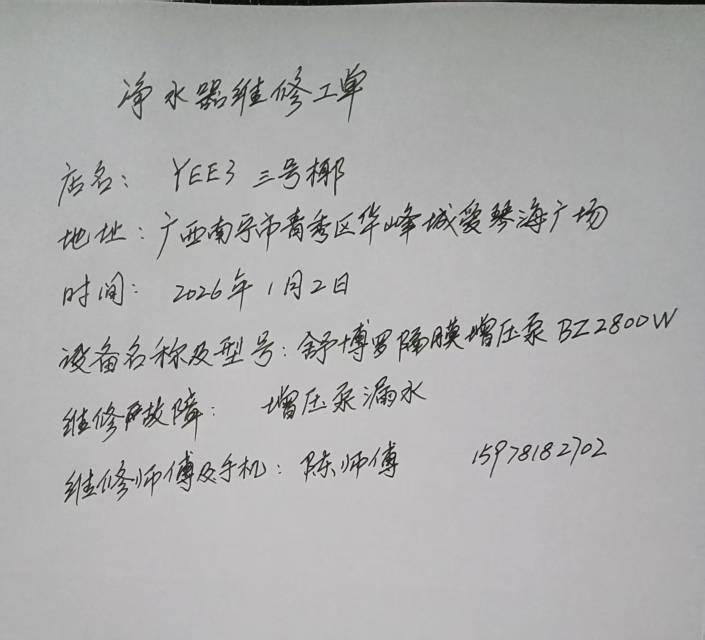 净水器维修工单
店名： YEE3 三号椰
地址：广西南宁市青秀区华峰城爱琴海广场
时间： 2026年1月2日
设备名称及型号：舒博罗隔膜增压泵BZ2800W
维修故障： 增压泵漏水
维修师傅及手机：陈师傅 15978182702